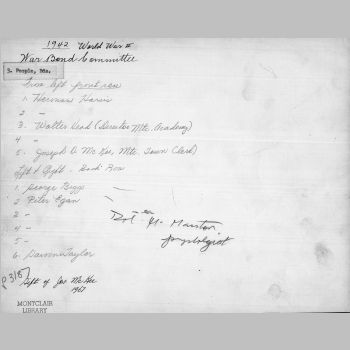 1942 World War II
War Bond Committee
3. People, Mis.
from left front row
1. Herman Harris
2 -
3. Walter Head (Director Mtc. Academy)
4 -
5. Joseph D. McKee, Mtc. Town Clerk)
Left to Right - Back Row
1. George Biggs -
2 Peter Egan -
3 -
4 -
5 -
6. Damon Taylor
H. Manston
Gift of Jos. McKee
1967
MONTCLAIR
LIBRARY